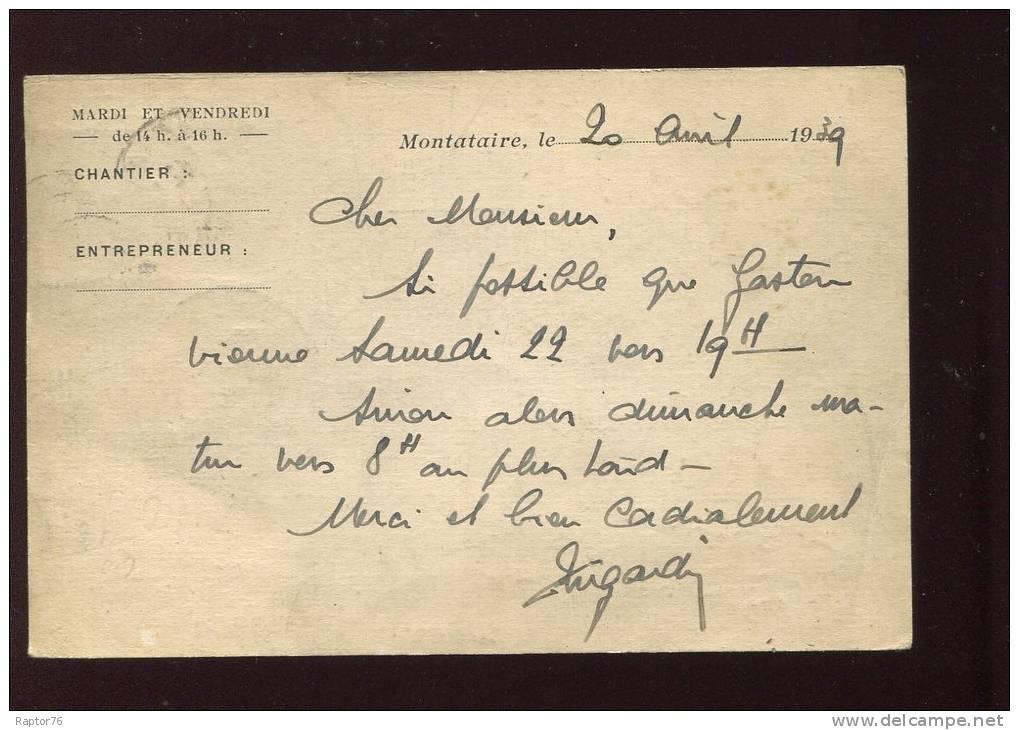 MARDI ET VENDREDI
— de 14 h. à 16 h. —
CHANTIER :
ENTREPRENEUR :
Montataire, le 20 Avril 1939
Cher Monsieur,
Si possible que Gaston
vienne Samedi 22 vers 19H
Sinon alors dimanche ma-
tin vers 8H au plus tard -
Merci et bien Cordialement
Raptor76
www.delcampe.net